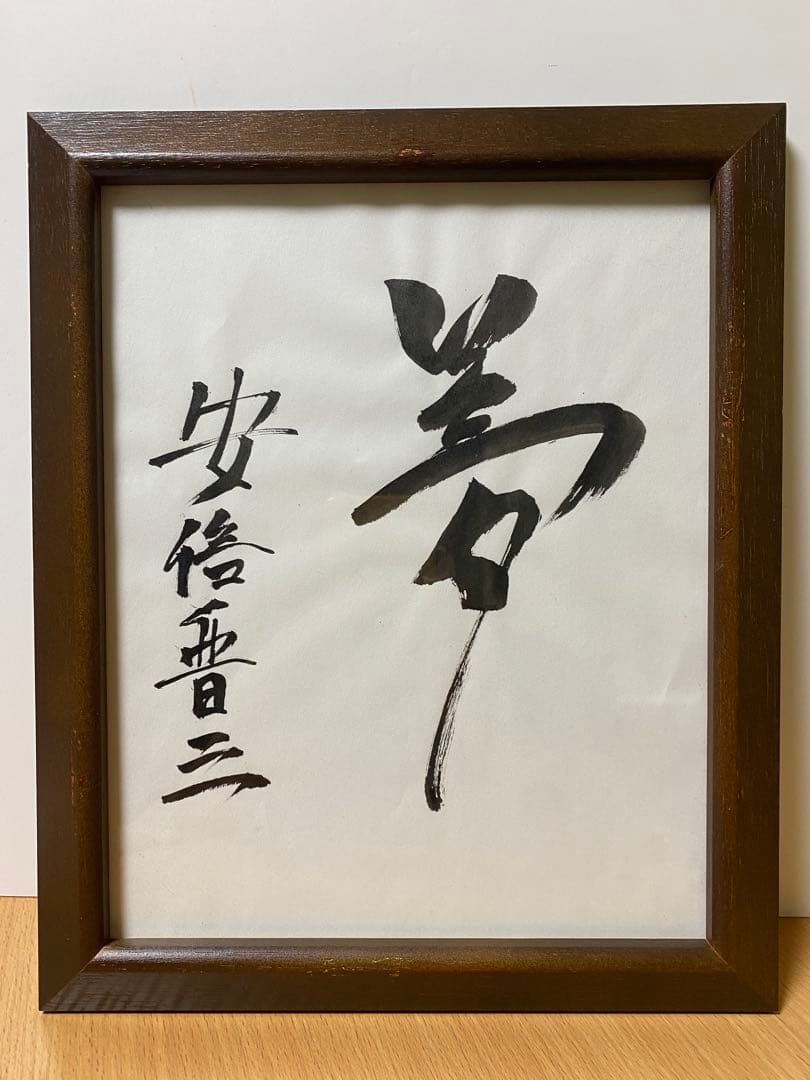 夢
安倍晋三